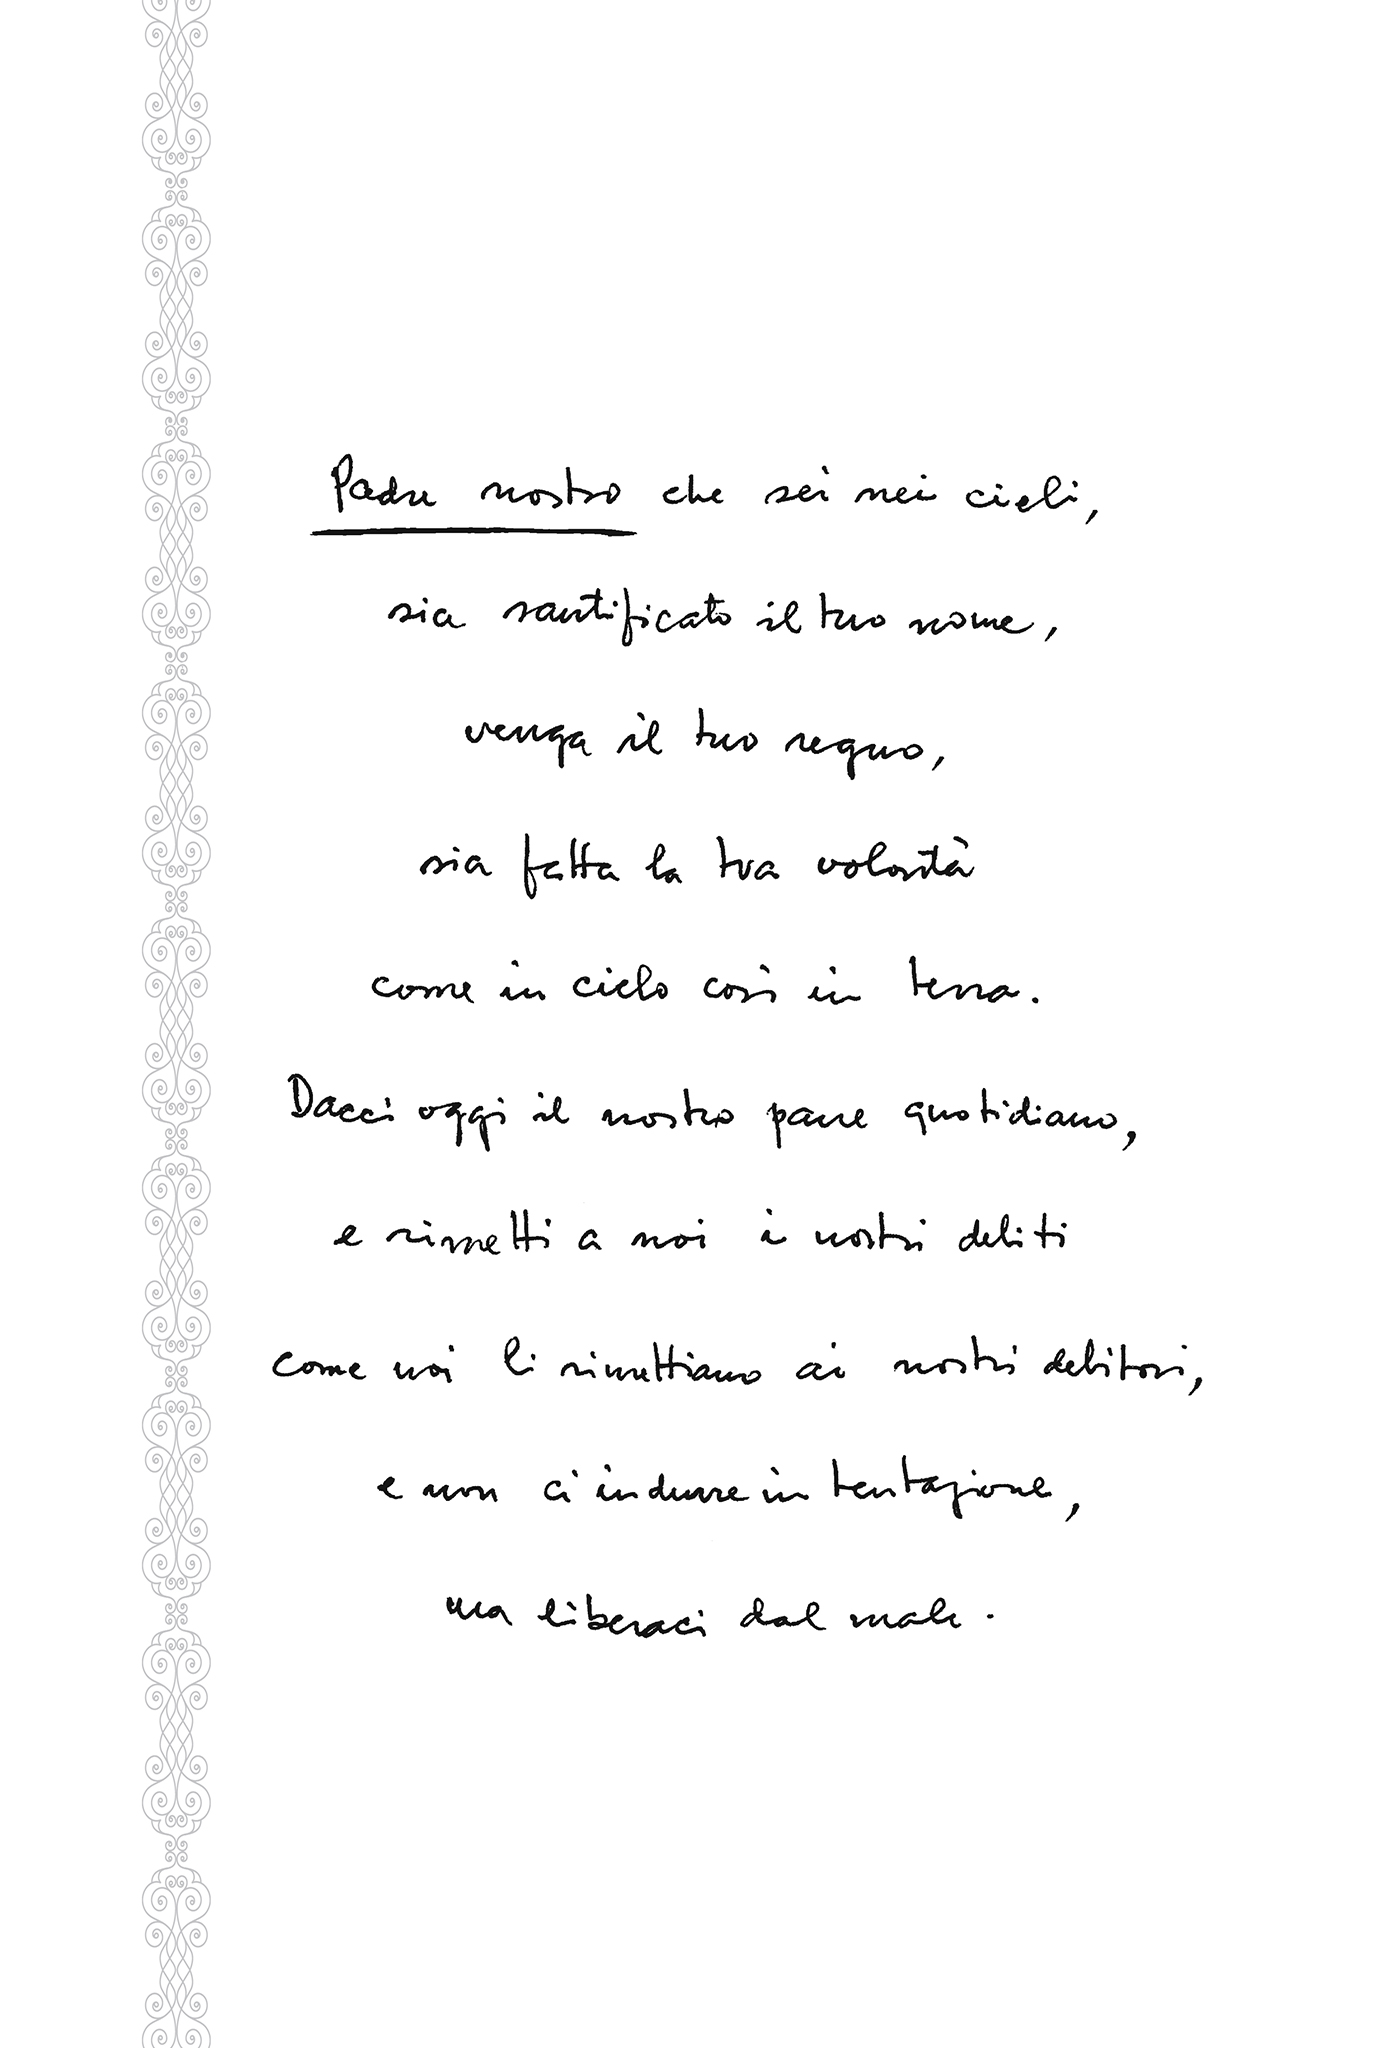 Padre nostro che sei nei cieli,
sia santificato il tuo nome,
venga il tuo regno,
sia fatta la tua volontà
come in cielo così in terra.
Dacci oggi il nostro pane quotidiano,
e rimetti a noi i nostri debiti
come noi li rimettiamo ai nostri debitori,
e non ci indurre in tentazione,
ma liberaci dal male.